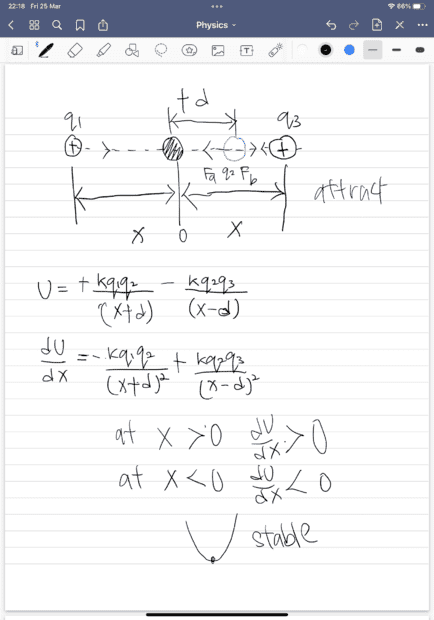 22:18 Fri 25 Mar
66%
Physics
+ d
q1 q3
+ +
Fa q2 Fb
attract
x 0 x
U = + kq1q2/(x+d) - kq2q3/(x-d)
dU/dx = - kq1q2/(x+d)² + kq2q3/(x-d)²
at x > 0 dU/dx > 0
at x < 0 dU/dx < 0
stable